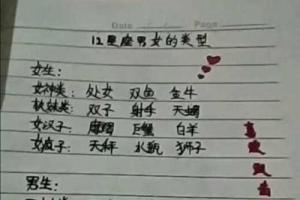 Date / / Page
12星座男女的类型
女生:
女神类: 处女 双鱼 金牛
软妹类: 双子 射手 天蝎
女汉子: 摩羯 巨蟹 白羊
女疯子: 天秤 水瓶 狮子
男生: